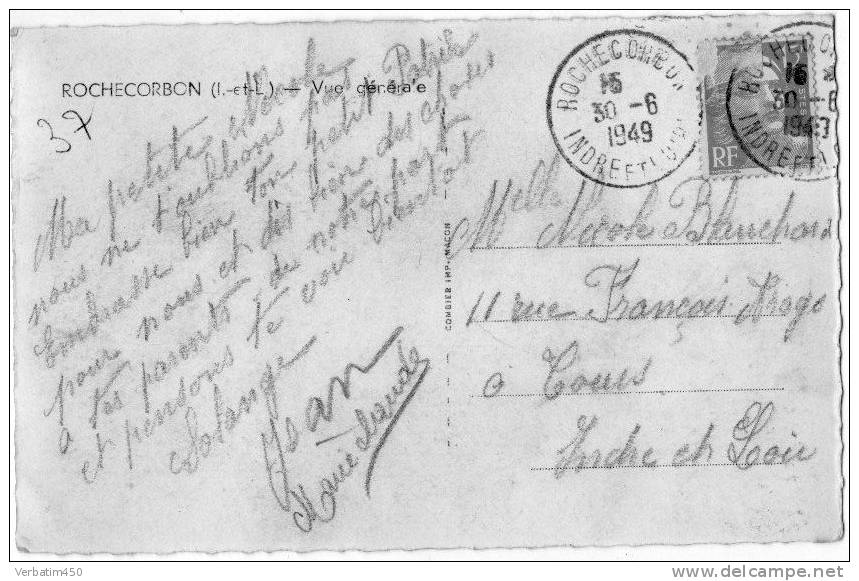 ROCHECORBON (I.-et-L.) — Vue générale
37
Ma petite Nicole
nous ne t'oublions pas
Embrasse bien ton petit Patrick
pour nous et dis bien des choses
a tes parents de notre part
et pensons te voir bientot
Solange
Jean
Marie Claude
COMBIER IMP. MACON
ROCHECORBON
15
30 -6
1949
INDRE ET LOIRE
RF
ROCHECO
16
30 -6
1949
INDRE ET L
Melle Nicole Blanchard
11 rue François Arago
a Tours
Indre et Loir
Verbatim450
www.delcampe.net